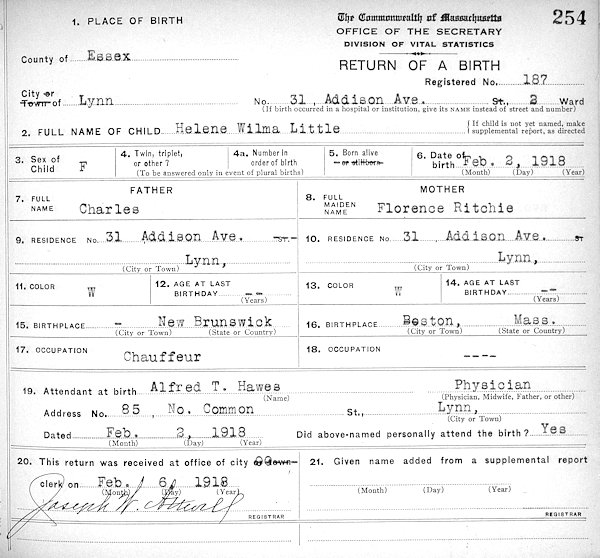 1. PLACE OF BIRTH
The Commonwealth of Massachusetts 254
OFFICE OF THE SECRETARY
DIVISION OF VITAL STATISTICS
County of Essex
RETURN OF A BIRTH
Registered No. 187
City or Town of Lynn No. 31, Addison Ave. St., 2 Ward
(If birth occurred in a hospital or institution, give its NAME instead of street and number)
2. FULL NAME OF CHILD Helene Wilma Little { If child is not yet named, make supplemental report, as directed
3. Sex of Child F 4. Twin, triplet, or other? 4a. Number in order of birth 5. Born alive or stillborn 6. Date of birth Feb. 2, 1918
(To be answered only in event of plural births) (Month) (Day) (Year)
FATHER MOTHER
7. FULL NAME Charles 8. FULL MAIDEN NAME Florence Ritchie
9. RESIDENCE No. 31 Addison Ave. ST. 10. RESIDENCE No. 31 Addison Ave. ST
Lynn, Lynn,
(City or Town) (City or Town)
11. COLOR W 12. AGE AT LAST BIRTHDAY -- 13. COLOR W 14. AGE AT LAST BIRTHDAY --
(Years) (Years)
15. BIRTHPLACE - New Brunswick 16. BIRTHPLACE Boston, Mass.
(City or Town) (State or Country) (City or Town) (State or Country)
17. OCCUPATION Chauffeur 18. OCCUPATION ----
19. Attendant at birth Alfred T. Hawes Physician
(Name) (Physician, Midwife, Father, or other)
Address No. 85, No. Common St., Lynn,
(City or Town)
Dated Feb. 2, 1918 Did above-named personally attend the birth? Yes
(Month) (Day) (Year)
20. This return was received at office of city or town clerk on Feb. 6, 1918 21. Given name added from a supplemental report
(Month) (Day) (Year) (Month) (Day) (Year)
Joseph W. Attwill
REGISTRAR REGISTRAR